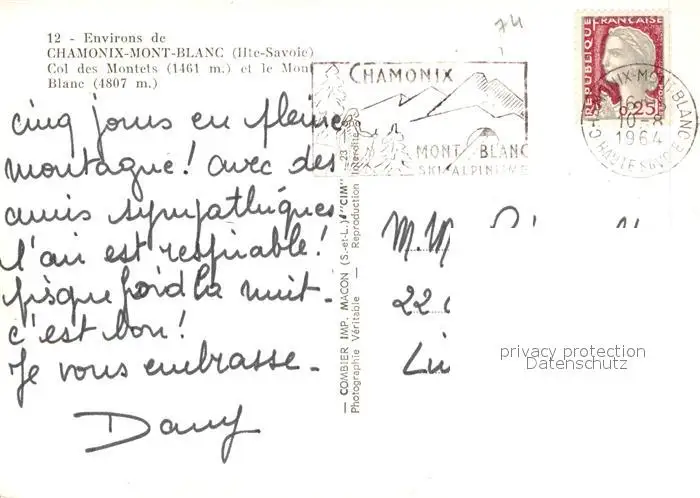 74
12 - Environs de
CHAMONIX-MONT-BLANC (Hte-Savoie)
Col des Montets (1461 m.) et le Mon
Blanc (4807 m.)
cinq jours en pleine
montagne! avec des
amis sympathiques
l'air est respirable!
presque froid la nuit-
c'est bon!
Je vous embrasse-
Dany
CHAMONIX
MONT BLANC
SKI ALPINISME
— COMBIER IMP. MACON (S.-et-L.) "CIM" — 23 —
Photographie Véritable — Reproduction Interdite
REPUBLIQUE FRANÇAISE
0,25
CHAMONIX-MONT-BLANC
16
10-8
1964
HAUTE SAVOIE
M. M
22
privacy protection
Datenschutz